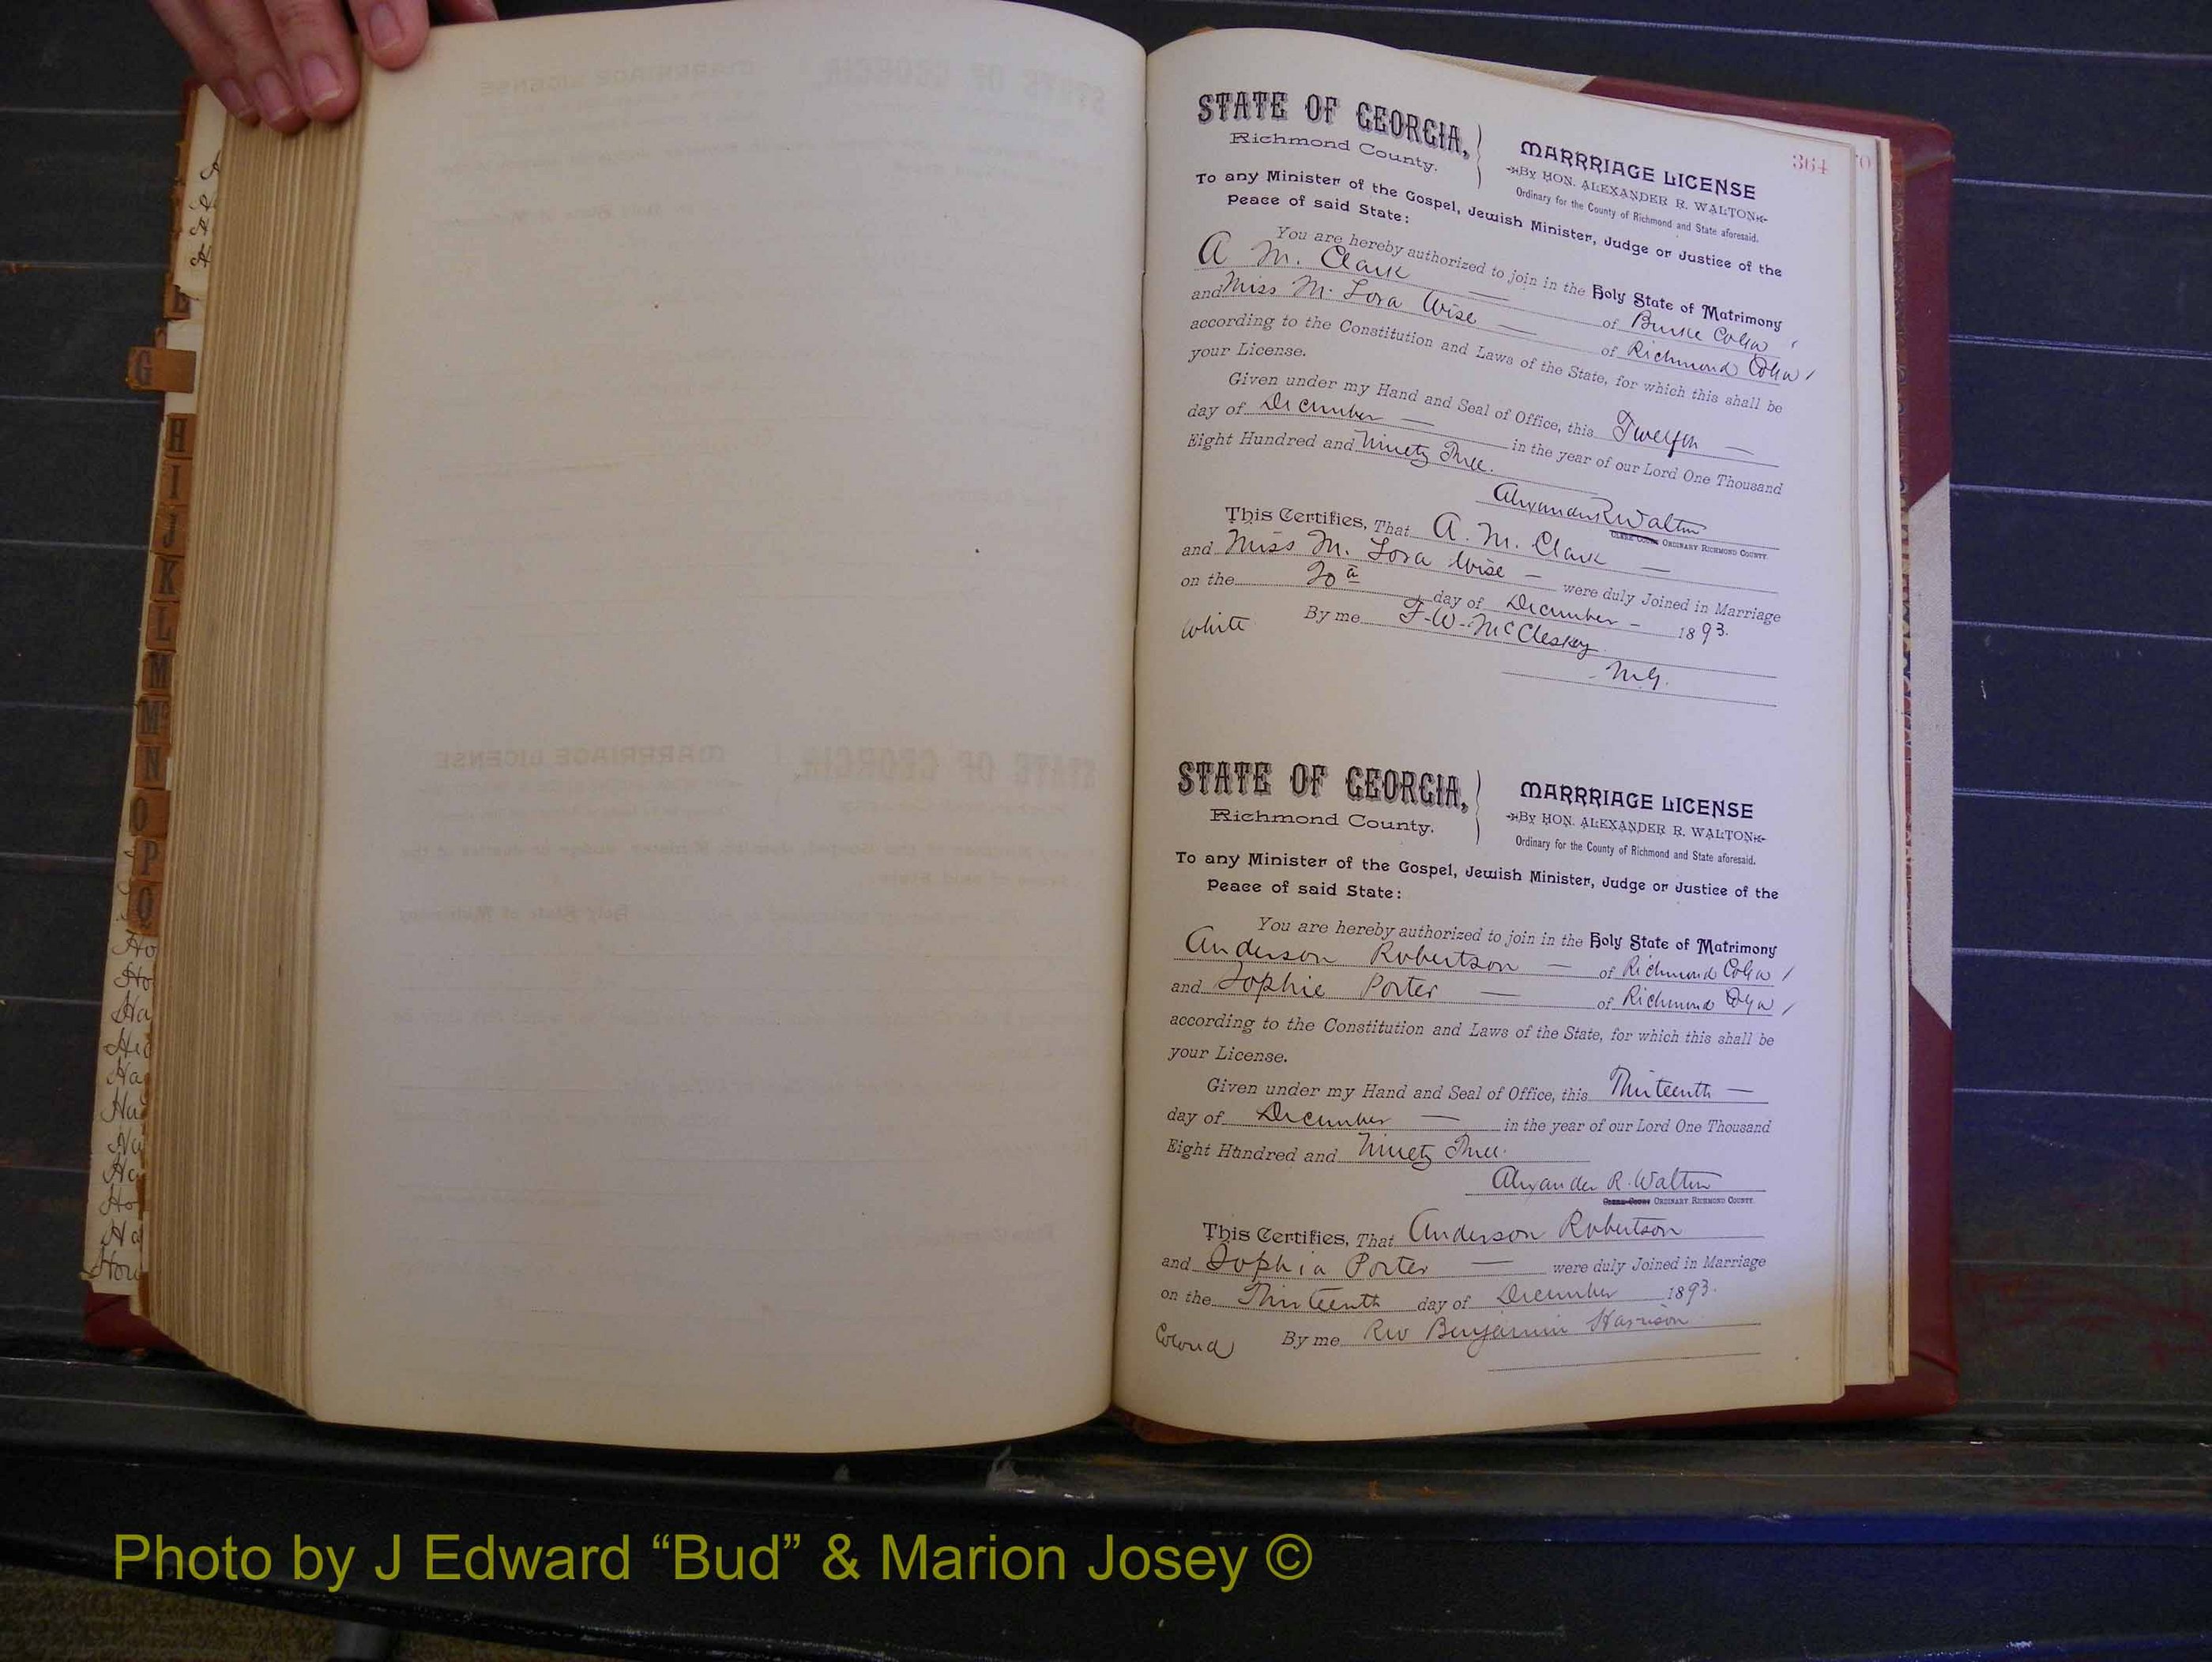 G
H
I
J
K
L
M
Mc
N
O
P
Q
364
STATE OF GEORGIA,
Richmond County.
MARRRIAGE LICENSE
By HON. ALEXANDER R. WALTON
Ordinary for the County of Richmond and State aforesaid.
To any Minister of the Gospel, Jewish Minister, Judge or Justice of the
Peace of said State:
You are hereby authorized to join in the Holy State of Matrimony
A M. Clark of Burke Co Ga
and Miss M. Lora Wise of Richmond Co Ga
according to the Constitution and Laws of the State, for which this shall be
your License.
Given under my Hand and Seal of Office, this Twelfth
day of December in the year of our Lord One Thousand
Eight Hundred and Ninety Three.
Alexander R Walton
ORDINARY RICHMOND COUNTY.
This Certifies, That A. M. Clark
and Miss M. Lora Wise were duly Joined in Marriage
on the 20 day of December 1893.
White By me F. W. McCleskey
M.G.
STATE OF GEORGIA,
Richmond County.
MARRRIAGE LICENSE
By HON. ALEXANDER R. WALTON
Ordinary for the County of Richmond and State aforesaid.
To any Minister of the Gospel, Jewish Minister, Judge or Justice of the
Peace of said State:
You are hereby authorized to join in the Holy State of Matrimony
Anderson Robertson of Richmond Co Ga
and Sophie Porter of Richmond Co Ga
according to the Constitution and Laws of the State, for which this shall be
your License.
Given under my Hand and Seal of Office, this Thirteenth
day of December in the year of our Lord One Thousand
Eight Hundred and Ninety Three.
Alexander R. Walton
ORDINARY RICHMOND COUNTY.
This Certifies, That Anderson Robertson
and Sophia Porter were duly Joined in Marriage
on the Thirteenth day of December 1893.
Colored By me Rev Benjamin Harrison
Photo by J Edward “Bud” & Marion Josey ©